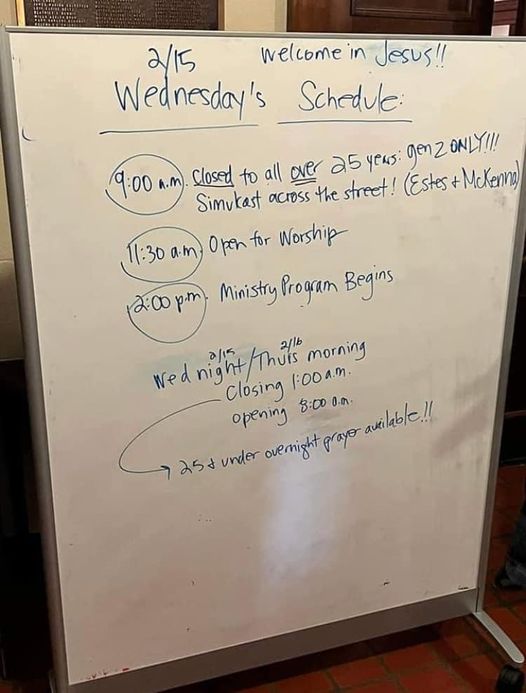 2/15 Welcome in Jesus!!
Wednesday's Schedule:
9:00 a.m. Closed to all over 25 years: gen Z ONLY!!!
Simulcast across the street! (Estes + McKenna)
11:30 a.m. Open for Worship
2:00 p.m. Ministry Program Begins
2/15 2/16
Wed night/Thurs morning
Closing 1:00 a.m.
opening 8:00 a.m.
25 & under overnight prayer available!!